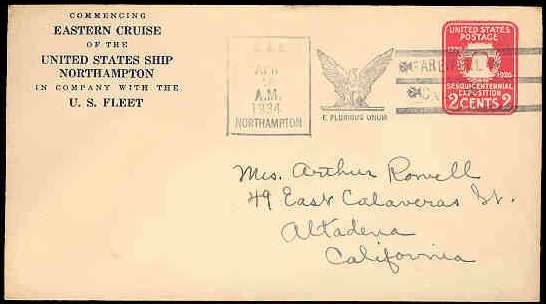 COMMENCING
EASTERN CRUISE
OF THE
UNITED STATES SHIP
NORTHAMPTON
IN COMPANY WITH THE
U. S. FLEET
A.M.
1934
NORTHAMPTON
E PLURIBUS UNUM
UNITED STATES
POSTAGE
1776
1926
SESQUICENTENNIAL
EXPOSITION
2 CENTS 2
Mrs. Arthur Rowell
49 East Calaveras St.
Altadena
California